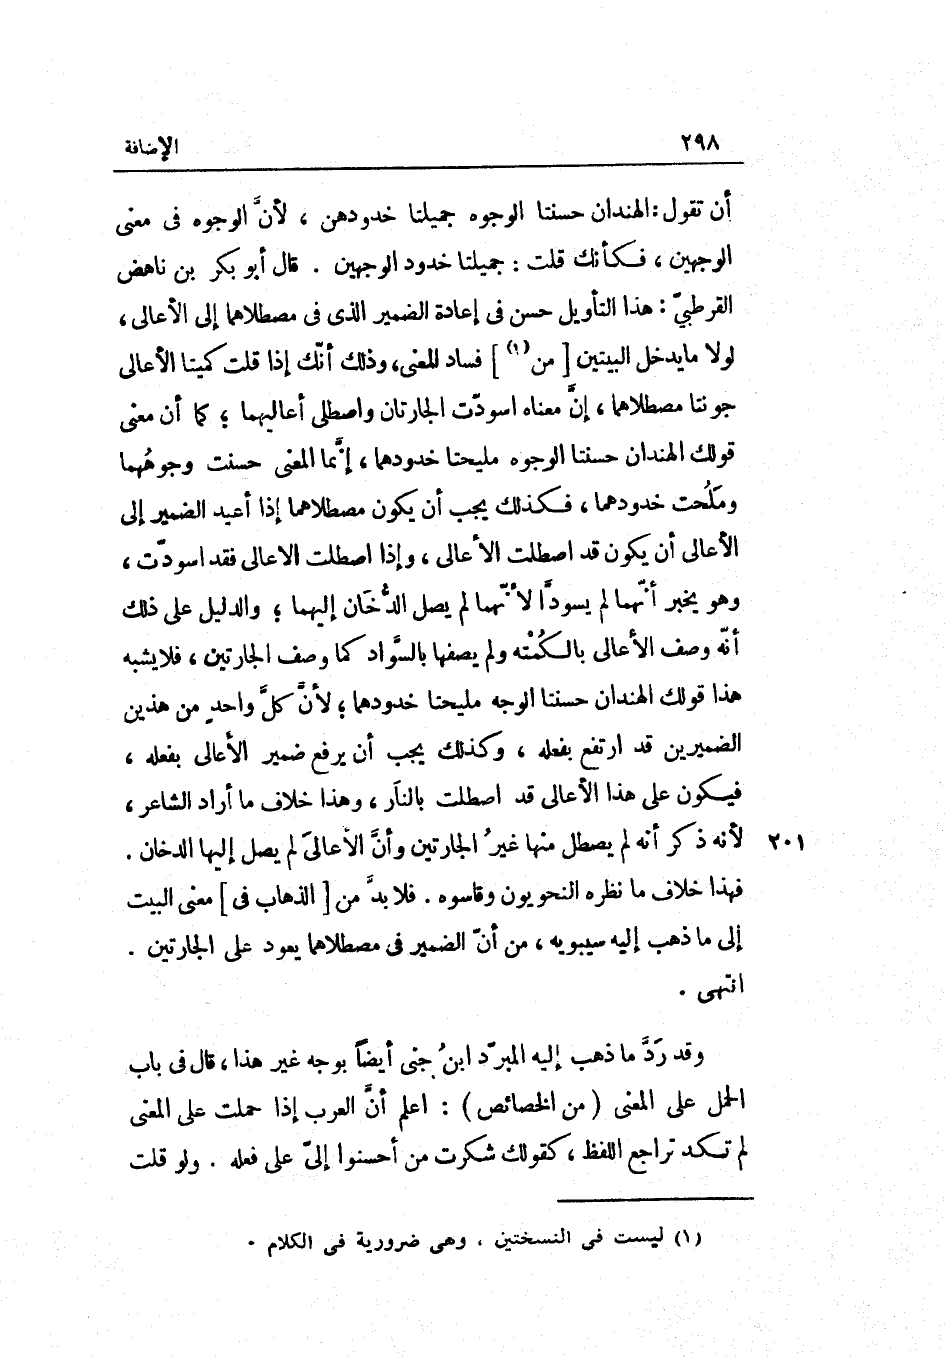 ٢٩٨ الإضافة
أن تقول: الهندان حسنتا الوجوه جميلتا خدودهن ، لأنَّ الوجوه فى معنى
الوجهين ، فكأنك قلت : جميلتا خدود الوجهين . قال أبو بكر بن ناهض
القرطبيّ : هذا التأويل حسن فى إعادة الضمير الذى فى مصطلاهما إلى الأعالى ،
لولا مايدخل البيتين [ من (١) ] فساد المعنى، وذلك أنّك إذا قلت كميتا الأعالى
جونتا مصطلاهما ، إنَّ معناه اسودّت الجارتان واصطلى أعاليهما ؛ كما أن معنى
قولك الهندان حسنتا الوجوه مليحتا خدودهما ، إنَّما المعنى حسنت وجوهُهما
ومَلُحت خدودهما ، فكذلك يجب أن يكون مصطلاهما إذا أعيد الضمير إلى
الأعالى أن يكون قد اصطلت الأعالى ، وإذا اصطلت الاعالى فقد اسودّت ،
وهو يخبر أنّهما لم يسودَّا لأنّهما لم يصل الدُّخَان إليهما ؛ والدليل على ذلك
أنّه وصف الأعالى بالكُمْته ولم يصفها بالسَّواد كما وصف الجارتين ، فلايشبه
هذا قولك الهندان حسنتا الوجه مليحتا خدودهما ؛ لأنَّ كلَّ واحدٍ من هذين
الضميرين قد ارتفع بفعله ، وكذلك يجب أن يرفع ضمير الأعالى بفعله ،
فيكون على هذا الأعالى قد اصطلت بالنار ، وهذا خلاف ما أراد الشاعر ،
لأنه ذكر أنه لم يصطل منها غيرُ الجارتين وأنَّ الأعالىَ لم يصل إليها الدخان . ٢٠١
فهذا خلاف ما نظره النحويون وقاسوه . فلا بدَّ من [ الذهاب فى ] معنى البيت
إلى ما ذهب إليه سيبويه ، من أنّ الضمير فى مصطلاهما يعود على الجارتين .
انتهى .
وقد رَدَّ ما ذهب إليه المبرّد ابنُ جِنى أيضاً بوجه غير هذا ، قال فى باب
الحمل على المعنى ( من الخصائص ) : اعلم أنَّ العرب إذا حملت على المعنى
لم تكد تراجع اللفظ ، كقولك شكرت من أحسنوا إلىّ على فعله . ولو قلت
(١) ليست فى النسختين ، وهى ضرورية فى الكلام .